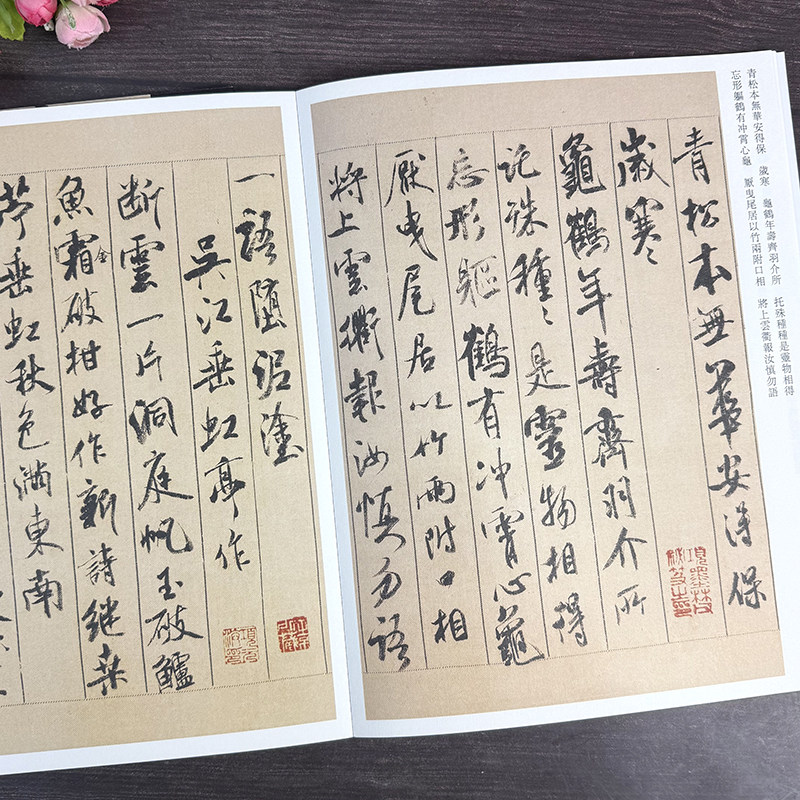 青松本無華安得保　歲寒　龜鶴年壽齊羽介所　托殊種種是靈物相得
忘形軀鶴有冲霄心龜　厭曳尾居以竹兩附口相　將上雲衢報汝慎勿語
青松本無華安得保
歲寒
龜鶴年壽齊羽介所
託殊種〻是靈物相得
忘形軀鶴有冲霄心龜
厭曳尾居以竹兩附口相
將上雲衢報汝慎勿語
一語墮泥塗
吳江垂虹亭作
断雲一片洞庭帆玉破鱸
魚霜金破柑好作新詩继桑
苧垂虹秋色満東南